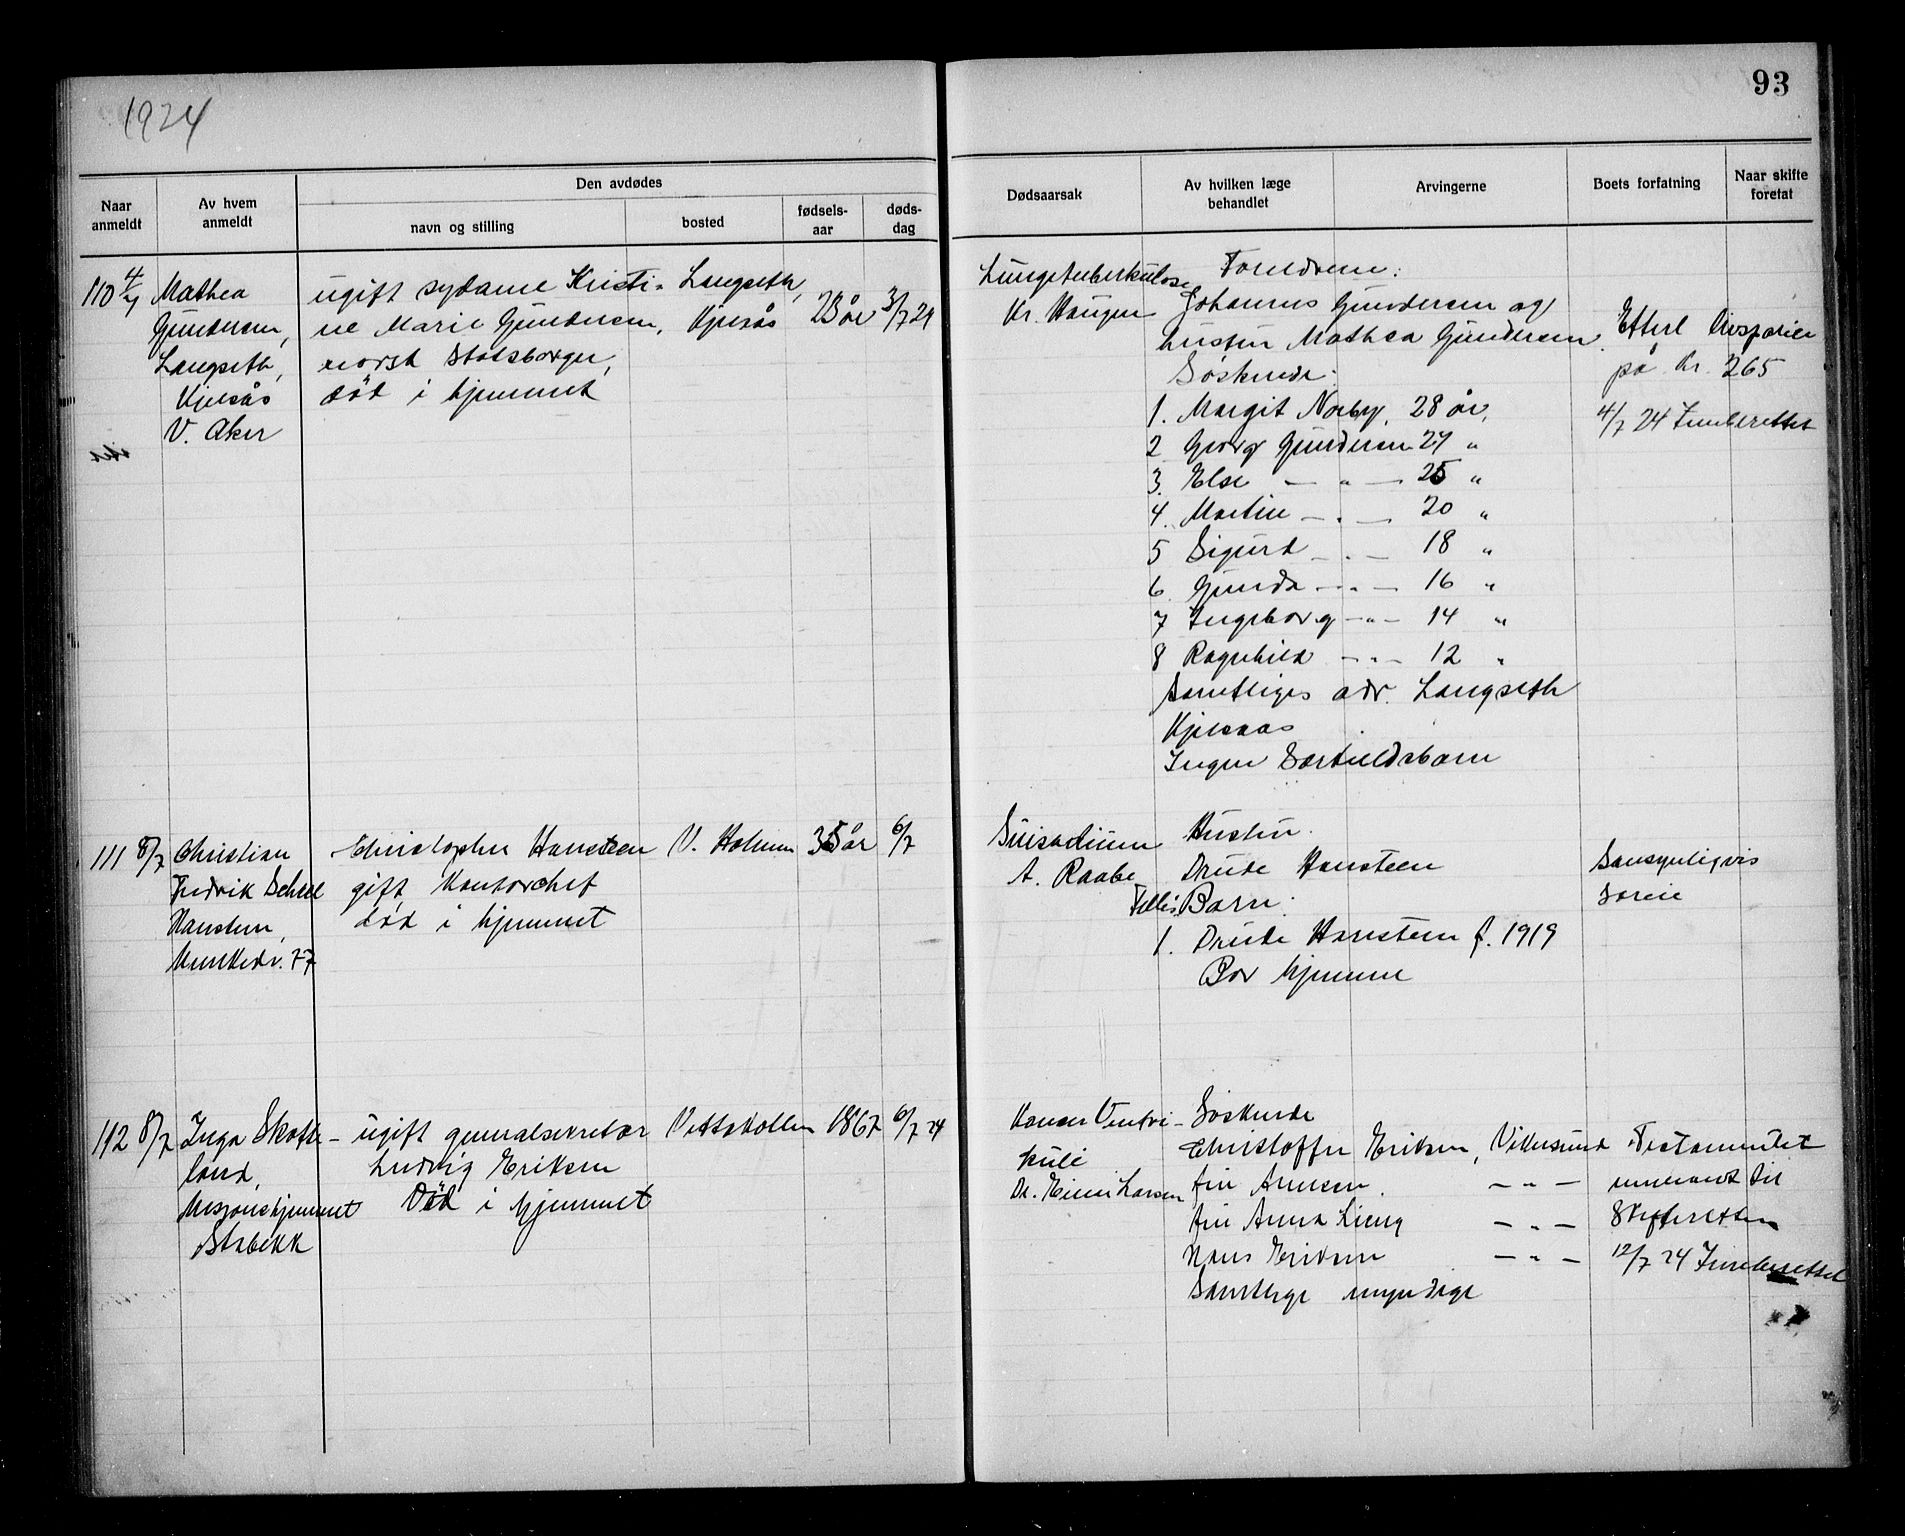 1924
93
Naar anmeldt
Av hvem anmeldt
Den avdødes
navn og stilling
bosted
fødsels-aar
døds-dag
Dødsaarsak
Av hvilken læge behandlet
Arvingerne
Boets forfatning
Naar skifte foretat
110 4/7
Mathea
Gundersen,
Langseth,
Kjelsås
V. Aker
ugift sydame Kristi-
ne Marie Gundersen,
norsk statsborger,
död i hjemmet
Langseth,
Kjelsås
23 år
3/7 24
Lungetuberkulose
Kr. Haugen
Foreldrene:
Johannes Gundersen og
hustru Mathea Gundersen
Søskende:
1. Margit Norby, 28 år,
2 Georg Gundersen 27 "
3. Else — " — 25 "
4. Martin — " — 20 "
5 Sigurd — " — 18 "
6. Gunda — " — 16 "
7 Ingeborg — " — 14 "
8 Ragnhild — " — 12 "
Samtliges adr. Langseth
Kjelsaas
Ingen Særkuldsbarn
Efterl. Avsparier
på Kr. 265
4/7 24 Innberettet
111 8/7
Christian
Fredrik Scheel
Hansteen,
Munkedr. 77
Christopher Hansteen
gift, Kontorchef
död i hjemmet
V. Holmen
35 år
6/7
Suisidium
A. Raabe
Hustru:
Drude Hansteen
Felles Barn:
1. Drude Hansteen f. 1919
Bor hjemme
Sansynligvis
112 8/7
Inga Skotte-
land,
Misjonshjemmet
Stabekk
ugift generalsekretær
Ludvig Eriksen
Död i hjemmet
Vettakollen
1867
6/7 24
Kancer Ventri-
kuli
Dr. Einar Larsen
Søskende
Christoffer Eriksen, Vikersund
fru Arnesen — " —
fru Anna Lieng — " —
Hans Eriksen — " —
Samtlige myndige
Testamentet
innsendt til
Skifteretten
12/7 24 Innberettet